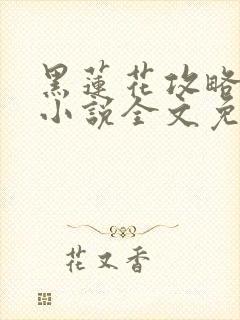 黑蓮花攻略
小說全文免
花又香